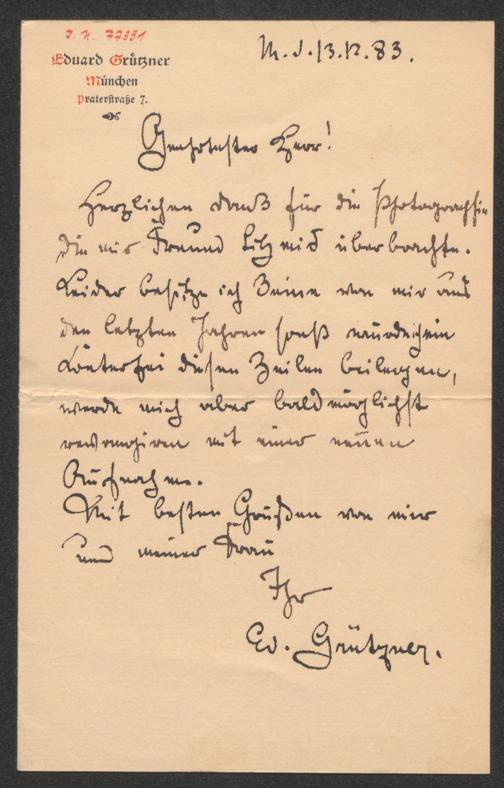 I. N. 77331
Eduard Grützner
München
Praterstraße 7.
M. d. 13.12.83.
Geehrtester Herr!
Herzlichen Dank für die Photographie
die mir Freund überbrachte.
Leider besitze ich keine von mir aus
den letzten Jahren sonst würde ich ein
Konterfei diesen Zeilen beilegen,
werde mich aber baldmöglichst
revangiren mit einer neuen
Aufnahme.
Mit besten Grüßen von mir
und meiner Frau
Ihr
Ed. Grützner.